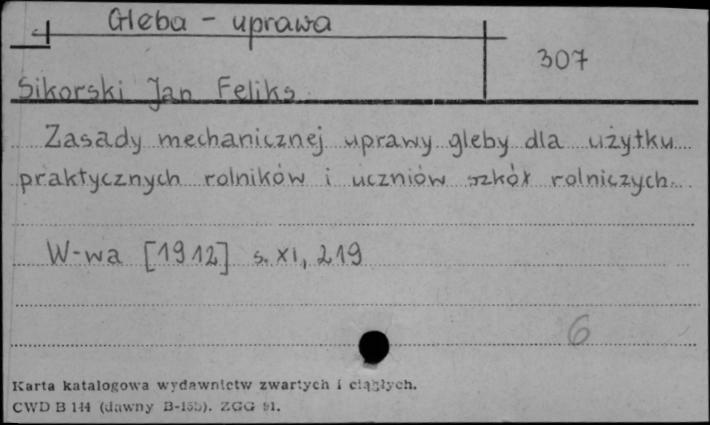 Gleba - uprawa
307
Sikorski Jan Feliks
Zasady mechanicznej uprawy gleby dla użytku
praktycznych rolników i uczniów szkół rolniczych.
W-wa [1912] s. XI, 219
6
Karta katalogowa wydawnictw zwartych i ciągłych.
CWD B 144 (dawny B-155). ZGG 91.